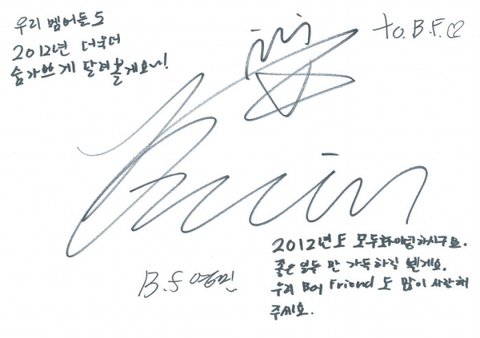 우리 멤버들도
2012년 더욱더
숨가쁘게 달려볼게요!
to. B.F. ♡
B.F 영민
2012년도 모두 화이팅하시구요.
좋은 일들만 가득하길 빌게요.
우리 Boy Friend 도 많이 사랑해
주세요.